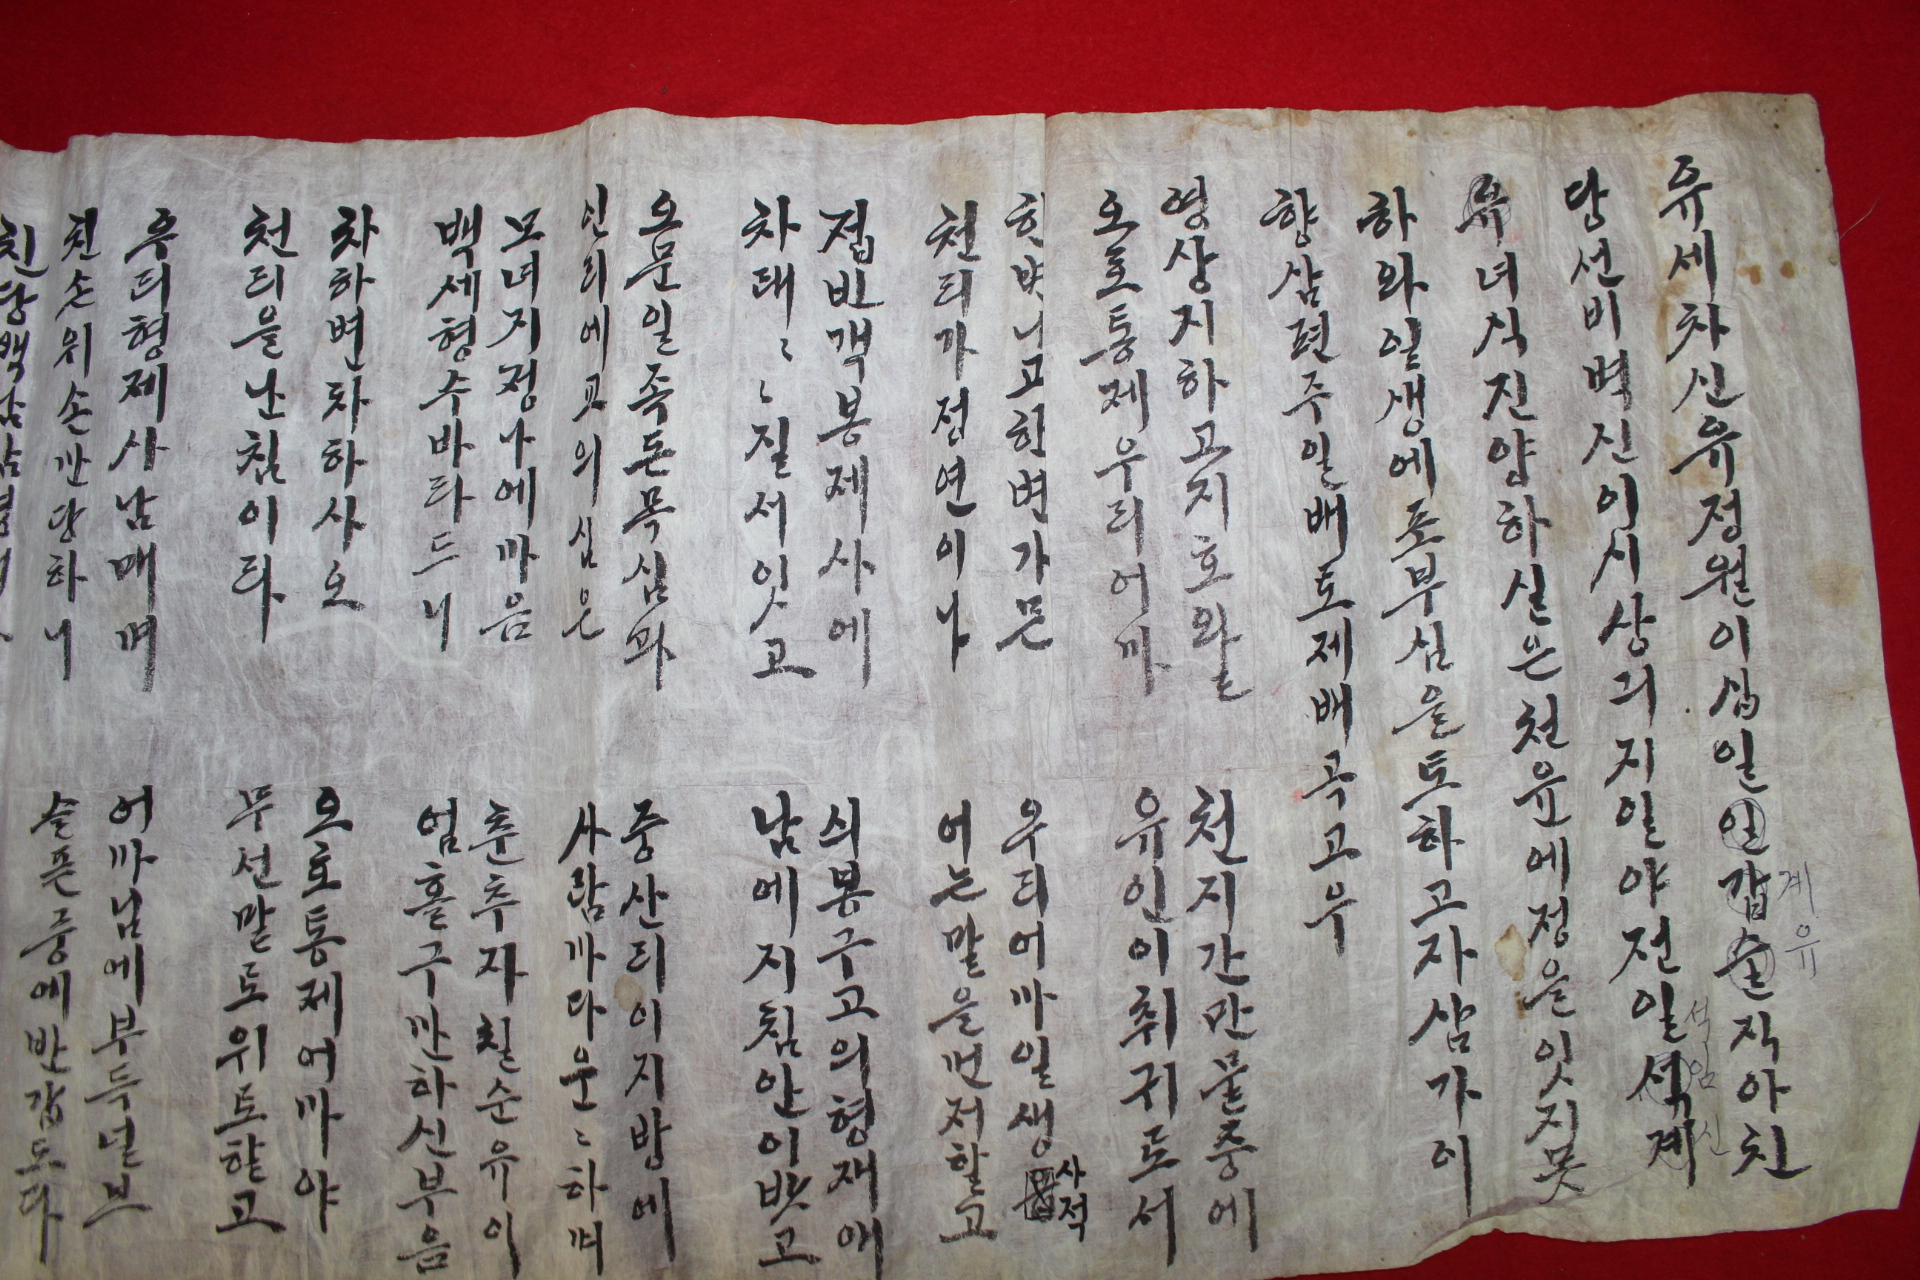 유세차신유정월이십일일갑슐직아친
계유
당선비벽진이시상긔지일야전일석계
석임신
유녀식진양하실은천윤에정을잇지못
하와일생에포부심을토하고자삼가이
향삼편주일배토제배곡고우
영상지하고지호와늘
오호통제우리어마
한번니고한변가믄
천리가정연이나
접빈객봉제사에
차태〻〻질서잇고
오문일족돈목심과
인리에교의심은
모녀지정나에마음
백세형수바라드니
차하변차하사오
천리을난침이라
우리형제사남매며
친손위손만당하니
천지간만물중에
유인이취귀도서
우리어마일생
사적
어는말을먼저할고
싀봉구고의형재애
남에지침안이밧고
중산리이지방에
사람마다운〻하며
춘추자칠순유이
엄홀구만하신부음
오호통제어마야
무선말노위로할고
어마님에부득널브
슬픈중에반갑도다